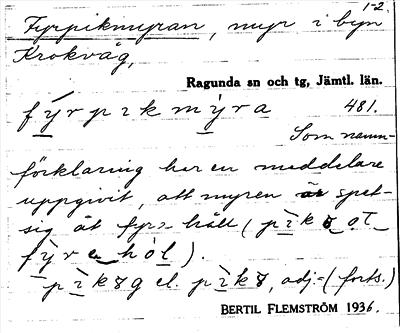 1-2.
Fyrpikmyran, myr i byn
Krokvåg,
Ragunda sn och tg, Jämtl. län.
fýrpɪkmỳra 481.
Som namn-
förklaring har en meddelare
uppgivit, att myren är spet-
sig åt fyra håll (
fỳra hȯ́l).
adj.= (forts.)
BERTIL FLEMSTRÖM 1936.